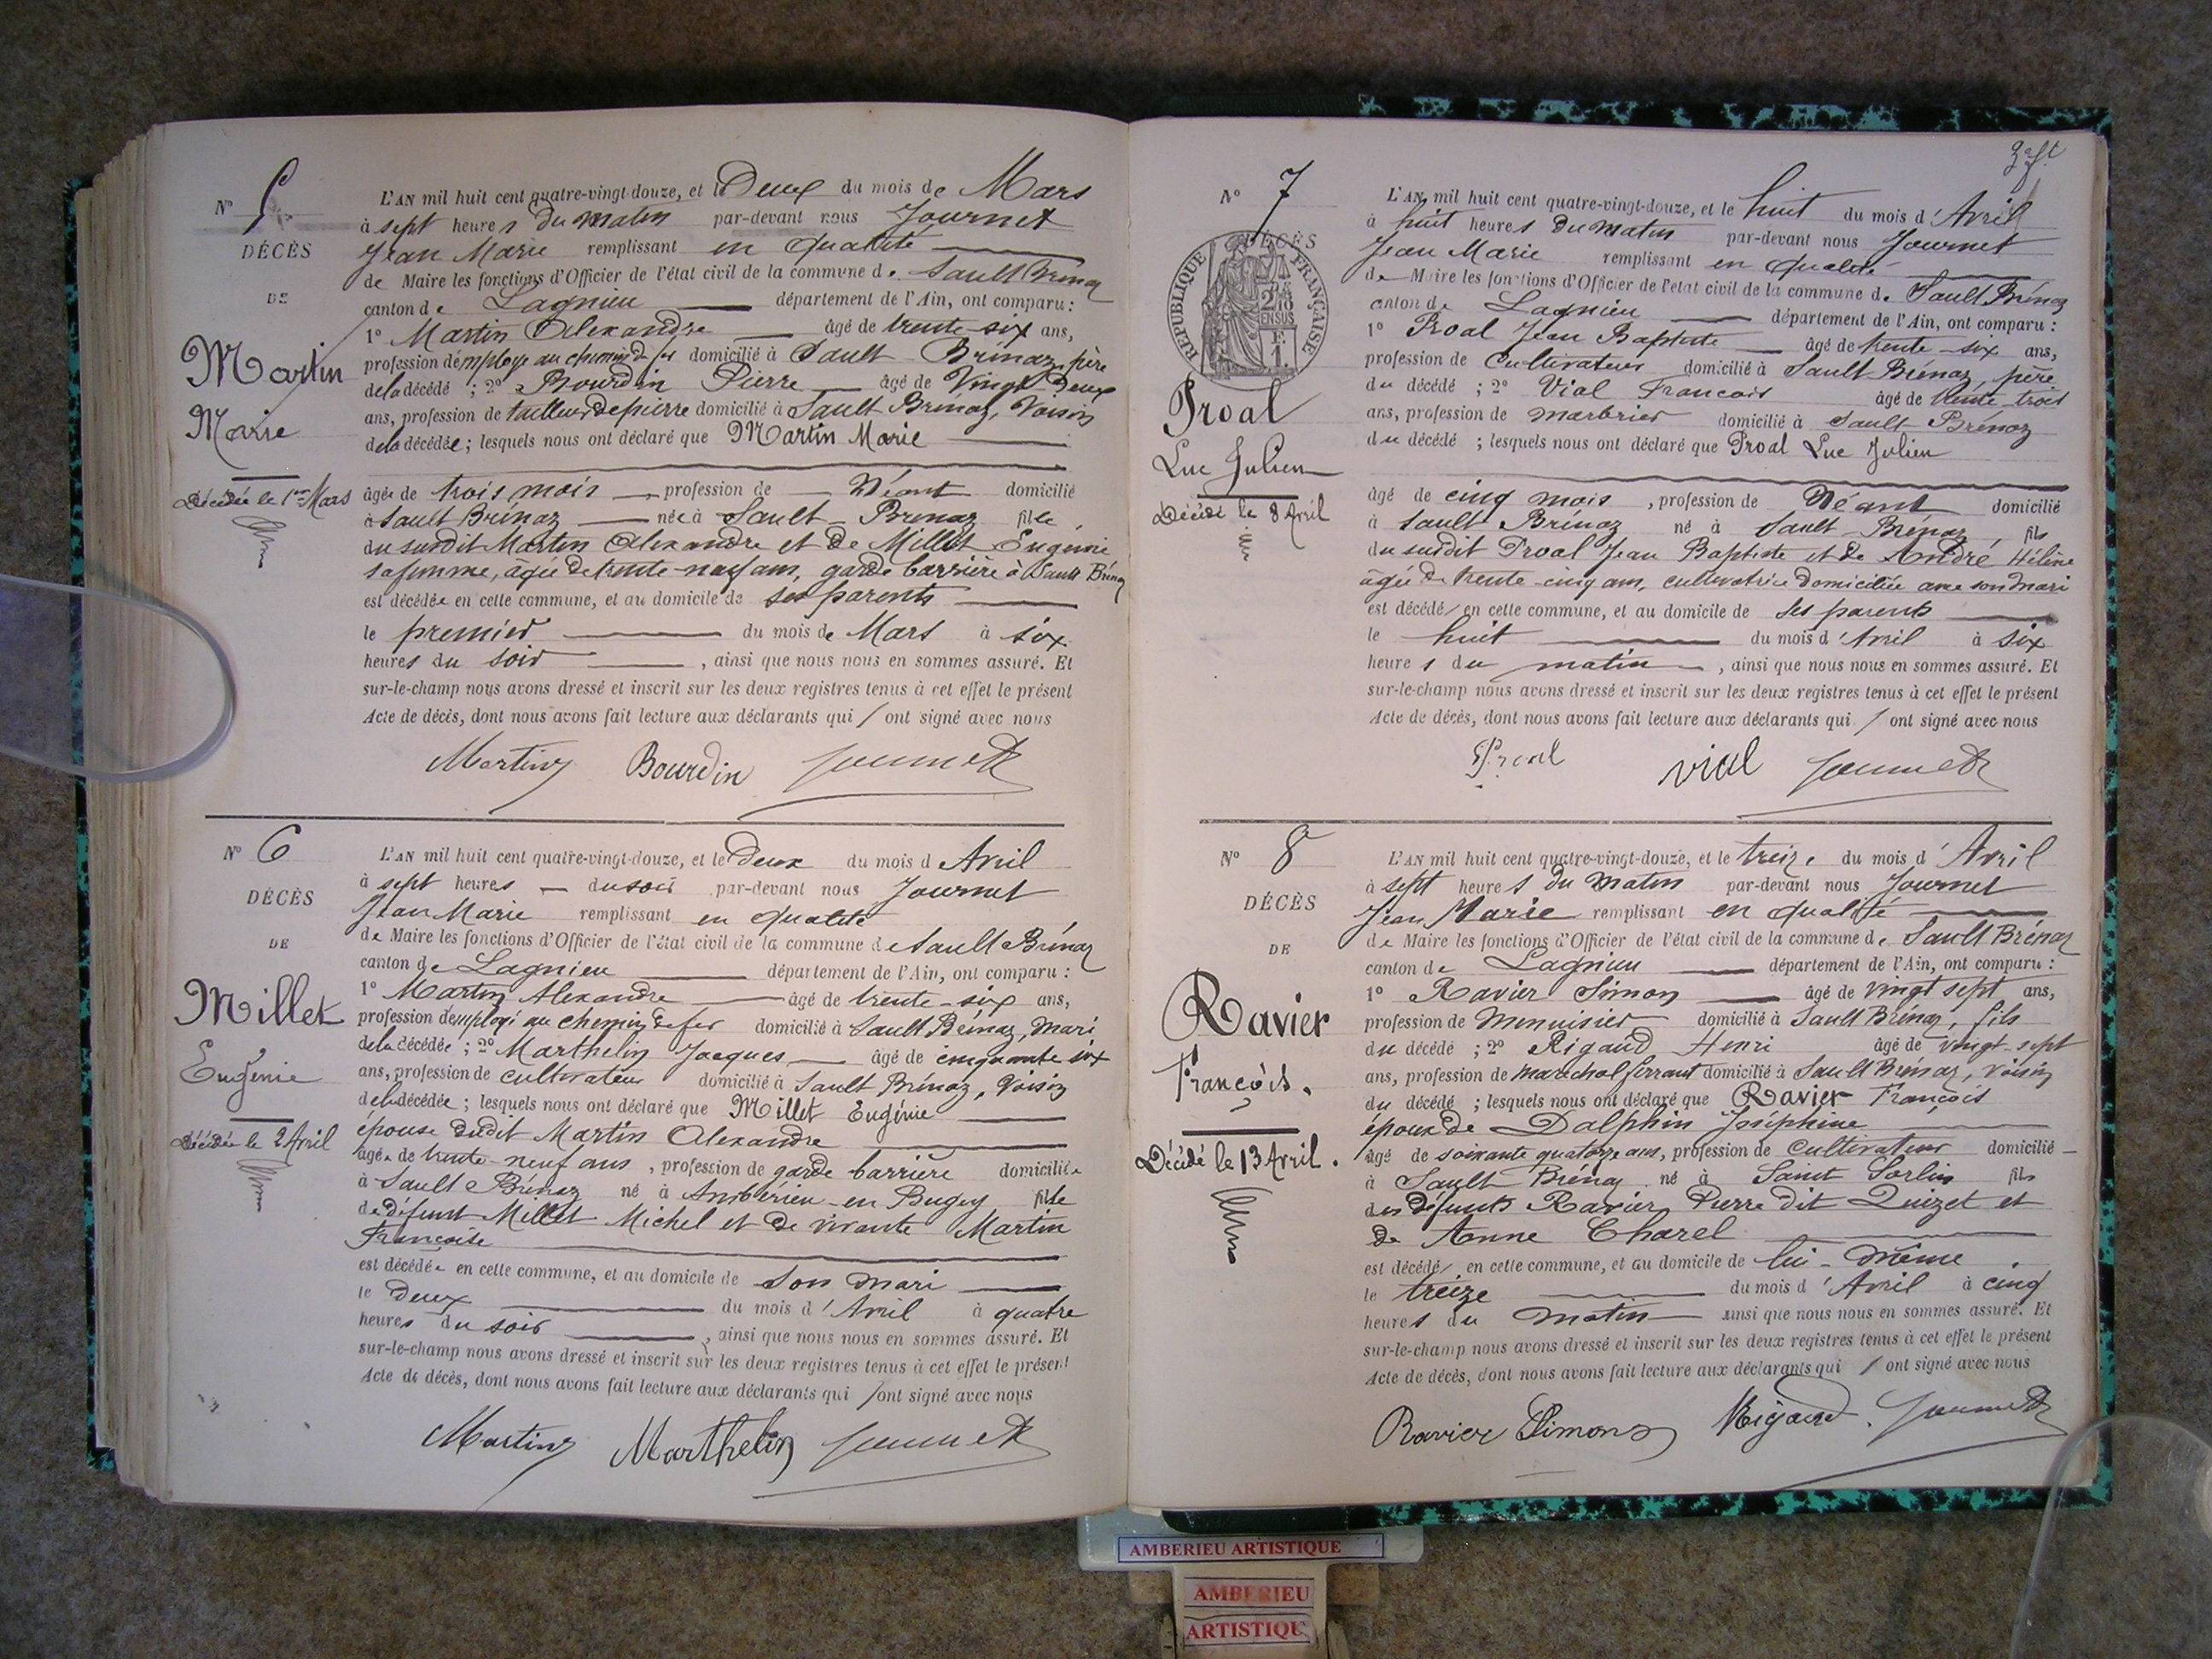 N° 5
DÉCÈS
DE
Martin
Marie
Décédée le 1er Mars
L'AN mil huit cent quatre-vingt-douze, et le Deux du mois de Mars
à sept heures du matin par-devant nous Journet
Jean Marie remplissant en qualité
de Maire les fonctions d'Officier de l'état civil de la commune de Sault Brénaz
canton de Lagnieu département de l'Ain, ont comparu :
1° Martin Alexandre âgé de trente-six ans,
profession d'employé au chemin de fer domicilié à Sault-Brénaz, père
de la décédé ; 2° Bourdin Pierre âgé de Vingt Deux
ans, profession de tailleur de pierre domicilié à Sault-Brénaz, Voisin
de la décédée ; lesquels nous ont déclaré que Martin Marie
âgée de trois mois, profession de Néant domicilié
à Sault Brénaz née à Sault-Brénaz fille
du susdit Martin Alexandre et de Millet Eugénie
sa femme, âgée de trente-neuf ans, garde barrière à Sault Brénaz
est décédée en cette commune, et au domicile de ses parents
le premier du mois de Mars à six
heures du soir, ainsi que nous nous en sommes assuré. Et
sur-le-champ nous avons dressé et inscrit sur les deux registres tenus à cet effet le présent
Acte de décès, dont nous avons fait lecture aux déclarants qui / ont signé avec nous
Martin Bourdin Journet
N° 6
DÉCÈS
DE
Millet
Eugénie
Décédée le 2 Avril
L'AN mil huit cent quatre-vingt-douze, et le deux du mois d'Avril
à sept heures du soir par-devant nous Journet
Jean Marie remplissant en qualité
de Maire les fonctions d'Officier de l'état civil de la commune de Sault Brénaz
canton de Lagnieu département de l'Ain, ont comparu :
1° Martin Alexandre âgé de trente-six ans,
profession d'employé au chemin de fer domicilié à Sault Brénaz, mari
de la décédée ; 2° Marthelin Jacques âgé de cinquante six
ans, profession de cultivateur domicilié à Sault Brénaz, Voisin
de la décédée ; lesquels nous ont déclaré que Millet Eugénie
épouse dudit Martin Alexandre
âgée de trente-neuf ans, profession de garde barrière domiciliée
à Sault Brénaz né à Ambérieu-en Bugey fille
de défunt Millet Michel et de vivante Martin
Françoise
est décédée en cette commune, et au domicile de son mari
le deux du mois d'Avril à quatre
heures du soir, ainsi que nous nous en sommes assuré. Et
sur-le-champ nous avons dressé et inscrit sur les deux registres tenus à cet effet le présent
Acte de décès, dont nous avons fait lecture aux déclarants qui / ont signé avec nous
Martin Marthelin Journet
N° 7
DÉCÈS
RÉPUBLIQUE FRANÇAISE
2/10 EN SUS
F. 1.
Proal
Luc Julien
Décédé le 8 Avril
L'AN mil huit cent quatre-vingt-douze, et le huit du mois d'Avril
à huit heures du matin par-devant nous Journet
Jean Marie remplissant en qualité
de Maire les fonctions d'Officier de l'état civil de la commune de Sault Brénaz
canton de Lagnieu département de l'Ain, ont comparu :
1° Proal Jean Baptiste âgé de trente-six ans,
profession de Cultivateur domicilié à Sault-Brénaz, père
du décédé ; 2° Vial Francois âgé de trente-trois
ans, profession de marbrier domicilié à Sault Brénaz
du décédé ; lesquels nous ont déclaré que Proal Luc Julien
âgé de cinq mois, profession de Néant domicilié
à Sault Brénaz né à Sault-Brénaz, fils
du susdit Proal Jean Baptiste et de André Hélène
âgée de trente-cinq ans, cultivatrice domiciliée avec son mari
est décédé en cette commune, et au domicile de ses parents
le huit du mois d'Avril à six
heures du matin, ainsi que nous nous en sommes assuré. Et
sur-le-champ nous avons dressé et inscrit sur les deux registres tenus à cet effet le présent
Acte de décès, dont nous avons fait lecture aux déclarants qui / ont signé avec nous
Proal vial Journet
N° 8
DÉCÈS
DE
Ravier
François.
Décédé le 13 Avril.
L'AN mil huit cent quatre-vingt-douze, et le treize du mois d'Avril
à sept heures du matin par-devant nous Journet
Jean Marie remplissant en qualité
de Maire les fonctions d'Officier de l'état civil de la commune de Sault Brénaz
canton de Lagnieu département de l'Ain, ont comparu :
1° Ravier Simon âgé de vingt sept ans,
profession de Menuisier domicilié à Sault Brénaz, fils
du décédé ; 2° Rigaud Henri âgé de vingt-sept
ans, profession de maréchal ferrant domicilié à Sault Brénaz, voisin
du décédé ; lesquels nous ont déclaré que Ravier François
époux de Dalphin Joséphine
âgé de soixante quatorze ans, profession de Cultivateur domicilié
à Sault Brénaz né à Saint Sorlin fils
des défunts Ravier Pierre dit Quizet et
de Anne Charel
est décédé en cette commune, et au domicile de lui-même
le treize du mois d'Avril à cinq
heures du matin ainsi que nous nous en sommes assuré. Et
sur-le-champ nous avons dressé et inscrit sur les deux registres tenus à cet effet le présent
Acte de décès, dont nous avons fait lecture aux déclarants qui / ont signé avec nous
Ravier Simon Rigaud. Journet
AMBERIEU ARTISTIQUE
AMBERIEU
ARTISTIQU